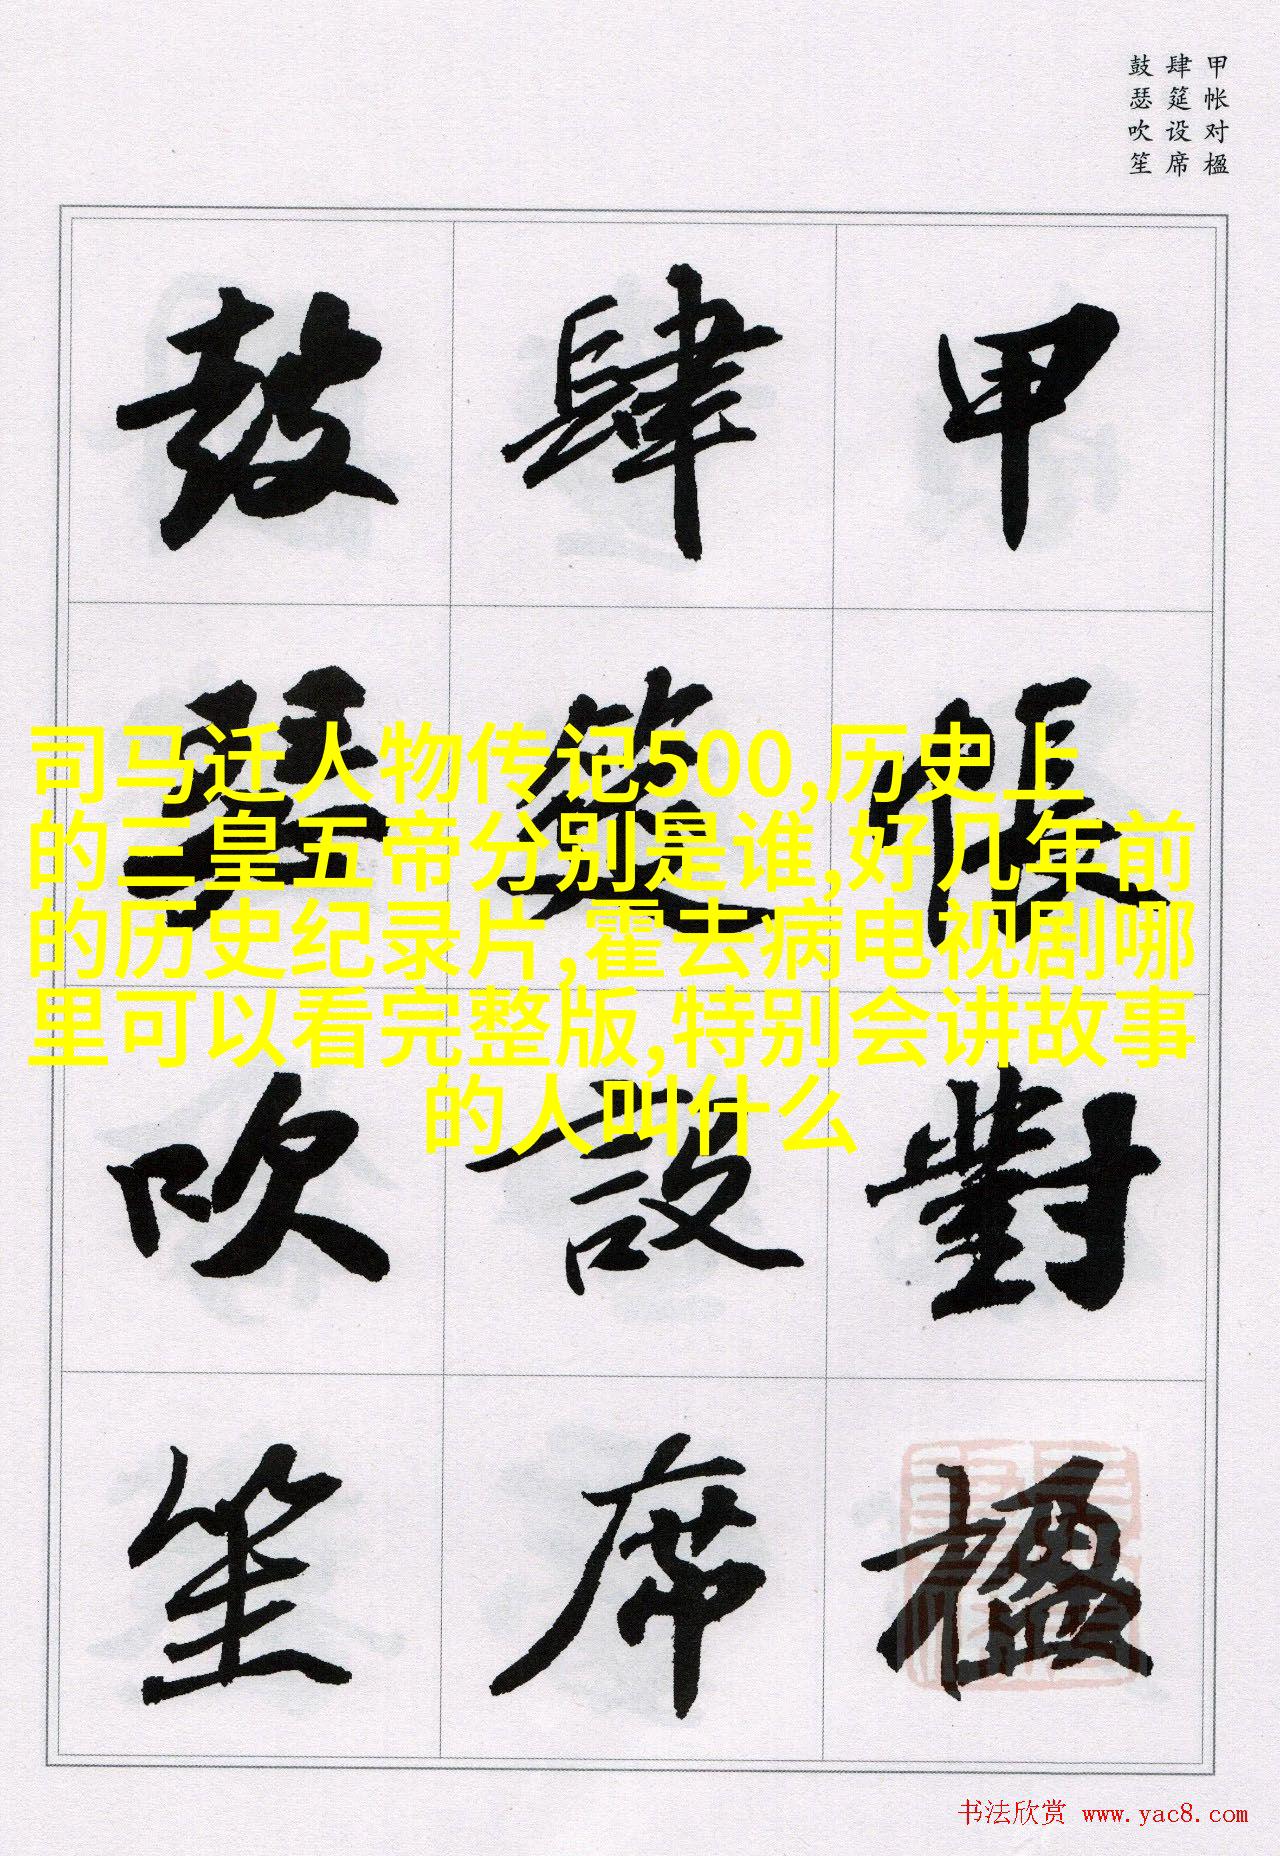 甲帐对楹
肆筵设席
鼓瑟吹笙
甲帳對楹
肆筵設席
鼓瑟吹笙
司马迁人物传记500,历史上
的三皇五帝分别是谁,好几年前
的历史纪录片,霍去病电视剧哪
里可以看完整版,特别会讲故事
的人叫什么
书法欣赏 www.yac8.com